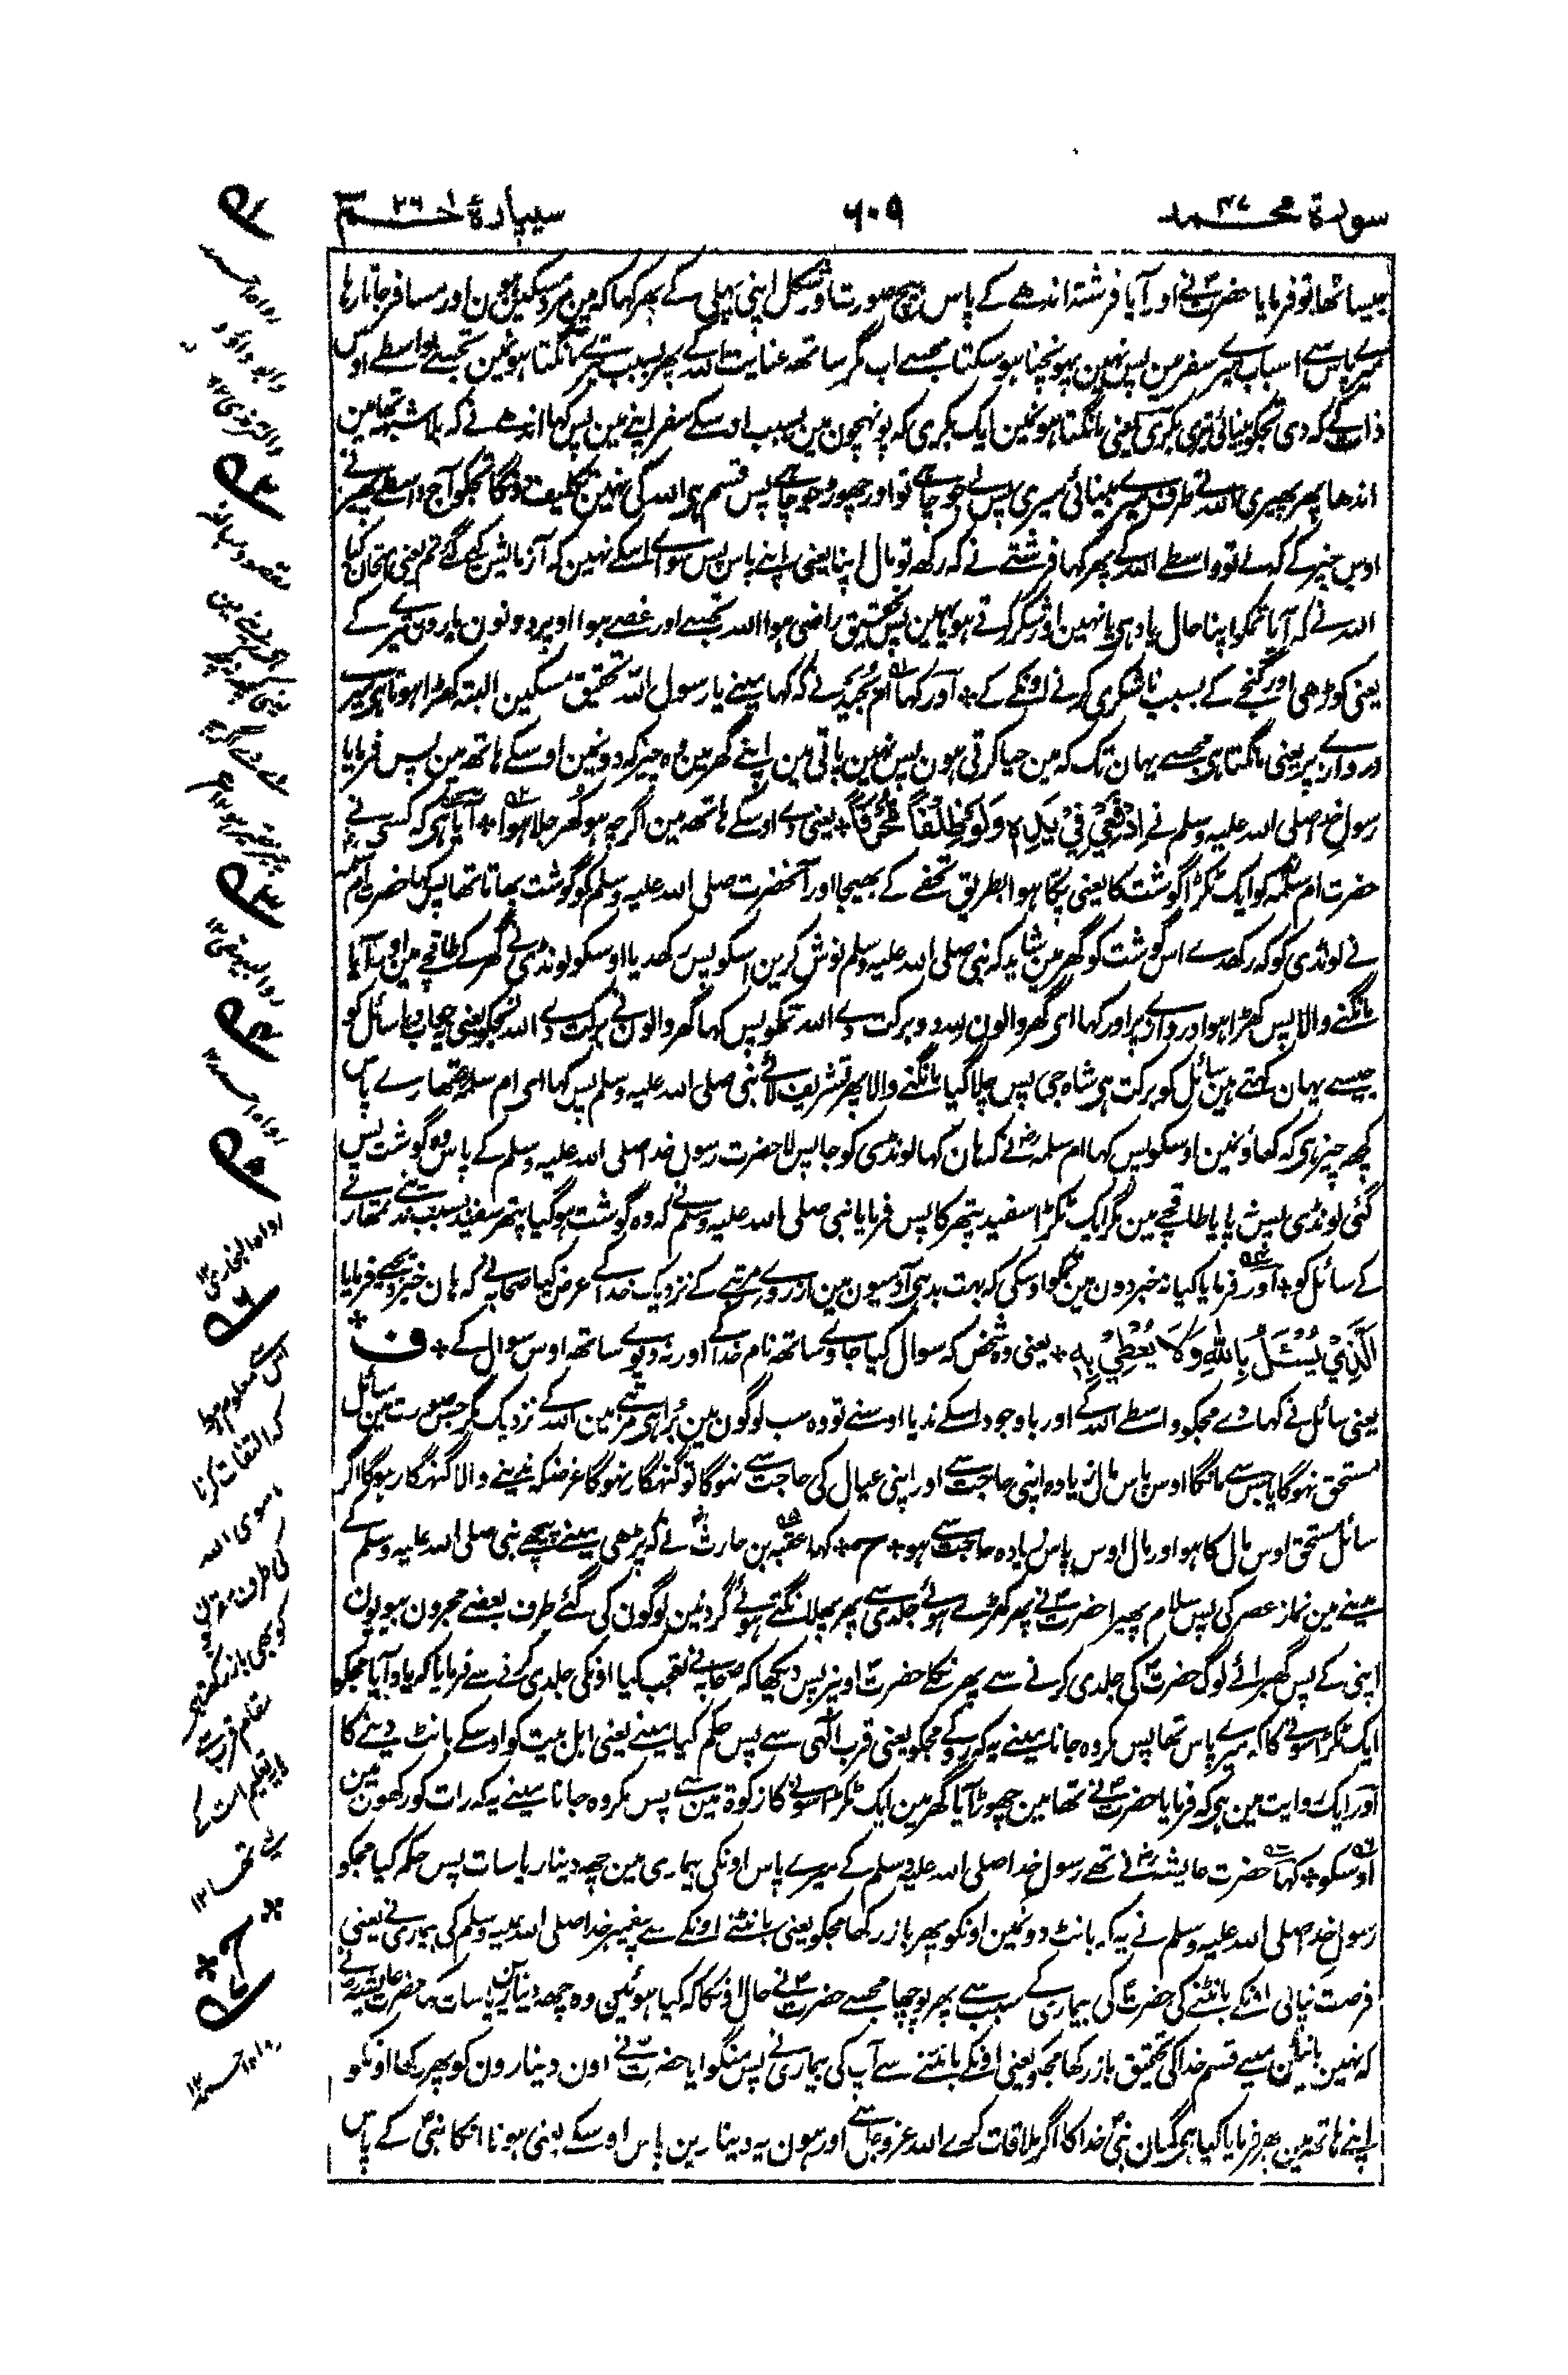 سورة محمد ۴۷
۶۰۹
سیپارۂ حٰم ۲۶
جیسا تھا تو فرمایا حضرتؐ نے اور آیا فرشتہ اندھے کے پاس بیچ صورت اور شکل اپنی پہلی کے پھر کہا کہ مین مرد مسکین ہون اور مسافر جاتا رہا
میرے پاس سے اسباب میرے سفر مین پس نہین پہونچنا ہو سکتا مجھسے اب مگر ساتھ عنایت اللہ کے پھر بسبب تیرے مانگتا ہونمین تجھسے بواسطے اوس
ذات کے کہ دی تجکو بینائی تیری بکری یعنی مانگتا ہونمین ایک بکری کہ پونہچون مین بسبب اوسکے سفر اپنے مین پس کہا اندھے نے کہ بلاشبہ تھا مین
اندھا پھر پھیری اللہ نے طرف میرے بینائی میری پس لے جو چاہے تو اور چھوڑ جو چاہے پس قسم ہی اللہ کی نہین تکلیف دونگا تجکو آج واسطے پھیرنے
اوس چیز کے کہ لے تو واسطے اللہ کے پھر کہا فرشتے نے کہ رکھ تو مال اپنا یعنی اپنے پاس پس سواے اسکے نہین کہ آزمایش کیے گئے تم یعنی امتحان کیا
اللہ نے کہ آیا تمکو اپنا حال یاد ہی یا نہین اور شکر کرتے ہو یا نہین پس تحقیق راضی ہوا اللہ تجھسے اور غصے ہوا اوپر دونون یارون تیرے کے
یعنی کوڑھی اور گنجے کے بسبب ناشکری کرنے اونکے کے + اور کہا ام بجید نے کہ کہا مینے یا رسول اللہ تحقیق مسکین البتہ کھڑا ہوتا ہی میرے
دروازے پر یعنی مانگتا ہی مجھسے یہان تک کہ مین حیا کرتی ہون پس نہین پاتی مین اپنے گھر مین وہ چیز کہ دونمین اوسکے ہاتھ مین پس فرمایا
رسول خدا صلی اللہ علیہ وسلم نے اِدْفَعِیْ فِیْ یَدِہٖ وَلَوْ ظِلْفًا مُّحْرَقًا + یعنی دے اوسکے ہاتھ مین اگرچہ ہو کُھر جلا ہوا + آیا ہی کہ کسی نے
حضرت ام سلمہ کو ایک ٹکڑا گوشت کا یعنی پکا ہوا بطریق تحفے کے بھیجا اور آنحضرت صلی اللہ علیہ وسلم کو گوشت بھاتا تھا پس کہا حضرت ام سلمہ
نے لونڈی کو کہ رکھدے اس گوشت کو گھر مین شاید کہ نبی صلی اللہ علیہ وسلم نوش کرین اسکو پس رکھدیا اوسکو لونڈی نے گھر کے طاقچے مین اور آیا
مانگنے والا پس کھڑا ہوا دروازے پر اور کہا ای گھر والون للہ دو برکت دے اللہ تمکو پس کہا گھر والون نے برکت دے اللہ تجکو یعنی جواب دیا سائل کو
جیسے یہان کہتے ہین سائل کو برکت ہی شاہ جی پس چلا گیا مانگنے والا پھر تشریف لائے نبی صلی اللہ علیہ وسلم پس کہا ای ام سلمہ تمھارے پاس
کچھ چیز ہی کہ کھاؤنمین اوسکو پس کہا ام سلمہ نے کہ ہان کہا لونڈی کو جا پس لا حضرت رسول خدا صلی اللہ علیہ وسلم کے پاس وہ گوشت پس
گئی لونڈی پس نپایا طاقچے مین مگر ایک ٹکڑا سفید پتھر کا پس فرمایا نبی صلی اللہ علیہ وسلم نے کہ وہ گوشت ہو گیا پتھر سفید بسبب ندینے تمھارے
کے سائل کو + اور فرمایا کیا نہ خبر دون مین تمکو اوسکی کہ بہت بد ہی آدمیون مین ازروے مرتبے کے نزدیک خدا کے عرض کیا صحابہ نے کہ ہان خبر دیجیے فرمایا
اَلَّذِیْ یُسْئَلُ بِاللّٰہِ وَلَا یُعْطِیْ بِہٖ + یعنی وہ شخص کہ سوال کیا جاوے ساتھ نام خدا کے اور نہ دیوے ساتھ اوس سوال کے + ف +
یعنی سائل نے کہا دے مجکو واسطے اللہ کے اور باوجود اسکے ندیا اوسنے تو وہ سب لوگون مین بُرا ہی مرتبے مین اللہ کے نزدیک مگر جس صورت مین سائل
مستحق نہوگا یا جس سے مانگا اوس پاس مال زیادہ اپنی حاجت سے اور اپنی عیال کی حاجت سے نہوگا تو گنہگار نہوگا غرضکہ ندینے والا گنہگار ہوگا اگر
سائل مستحق اوس مال کا ہو اور مال اوس پاس زیادہ حاجت سے ہو + کہا عقبہ بن حارث نے کہ پڑھی مینے پیچھے نبی صلی اللہ علیہ وسلم کے
مدینے مین نماز عصر کی پس سلام پھیرا حضرتؐ نے پھر کھڑے ہوئے جلدی سے پھر پھلانگتے ہوئے گردنین لوگون کی گئے طرف بعضے حجرون بیویون
اپنی کے پس گھبرائے لوگ حضرتؐ کی جلدی کرنے سے پھر نکلے حضرتؐ اونپر پس دیکھا کہ صحابہ نے تعجب کیا اونکی جلدی کرنے سے فرمایا کہ یاد آیا مجکو
ایک ٹکڑا سونے کا کہ میرے پاس تھا پس مکروہ جانا مینے یہ کہ روکے مجکو یعنی قرب الٰہی سے پس حکم کیا مینے یعنی اہل بیت کو اوسکے بانٹ دینے کا
اور ایک روایت مین ہی کہ فرمایا حضرتؐ نے تھا مین چھوڑ آیا گھر مین ایک ٹکڑا سونے کا زکوۃ مین سے پس مکروہ جانا مینے یہ کہ رات کو رکھون مین
اوسکو + کہا حضرت عایشہؓ نے تھے رسول خدا صلی اللہ علیہ وسلم کے میرے پاس اونکی بیماری مین چھہ دینار یا سات پس حکم کیا مجکو
رسول خدا صلی اللہ علیہ وسلم نے یہ کہ بانٹ دونمین اونکو پھر باز رکھا مجکو یعنی بانٹنے اونکے سے پیغمبر خدا صلی اللہ علیہ وسلم کی بیماری نے یعنی
فرصت نپائی اونکے بانٹنے کی حضرتؐ کی بیماری کے سبب سے پھر پوچھا مجھسے حضرتؐ نے حال اونکا کہ کیا ہوئین وہ چھہ دینارین یا سات کہا حضرت عایشہؓ نے
کہ نہین بانٹین مینے قسم خدا کی تحقیق باز رکھا مجکو یعنی اونکے بانٹنے سے آپ کی بیماری نے پس منگوایا حضرتؐ نے اون دینارون کو پھر رکھا اونکو
اپنے ہاتھ مین پھر فرمایا کیا ہی گمان نبی خدا کا اگر ملاقات کرے اللہ عزوجل سے اور ہون یہ دینارین پاس اوسکے یعنی ہونا انکا نبی کے پاس
رواہ احمد
وابو داؤد
والترمذی ۱۲
رواہ احمد ۱۲
رواہ البخاری ۱۲
اس سے معلوم ہوا
کہ التفات کرنا
ما سوی اللہ
کی طرف مقربین
کو بھی باز رکھتا ہی
مقام قرب سے
یا تعلیم امت کے
لیے تھا ۱۲
رواہ احمد ۱۲